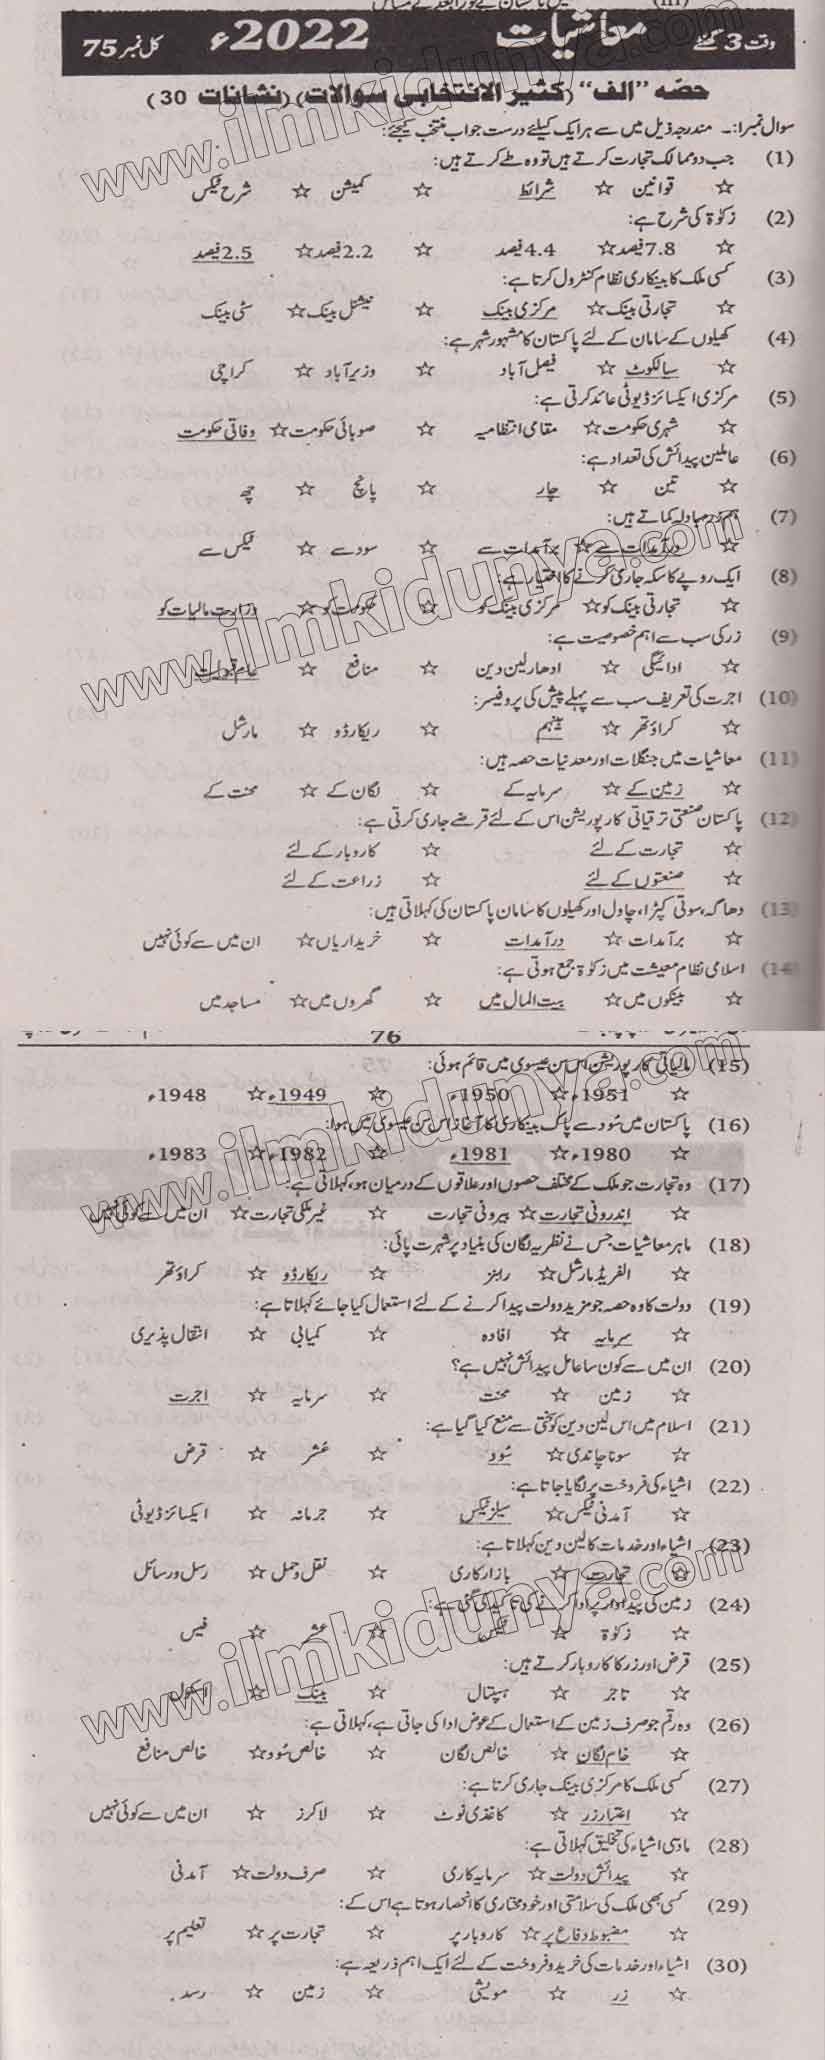 وقت 3 گھنٹے معاشیات 2022ء کل نمبر 75
حصّہ "الف" (کثیر الانتخابی سوالات) (نشانات 30)
سوال نمبر ۱:۔ مندرجہ ذیل میں سے ہر ایک کیلئے درست جواب منتخب کیجئے:
(1) جب دو ممالک تجارت کرتے ہیں تو وہ طے کرتے ہیں:
☆ قوانین ☆ شرائط ☆ کمیشن ☆ شرح ٹیکس
(2) زکوٰۃ کی شرح ہے:
☆ 7.8 فیصد ☆ 4.4 فیصد ☆ 2.2 فیصد ☆ 2.5 فیصد
(3) کسی ملک کا بینکاری نظام کنٹرول کرتا ہے:
☆ تجارتی بینک ☆ مرکزی بینک ☆ نیشنل بینک ☆ سٹی بینک
(4) کھیلوں کے سامان کے لئے پاکستان کا مشہور شہر ہے:
☆ سیالکوٹ ☆ فیصل آباد ☆ وزیر آباد ☆ کراچی
(5) مرکزی ایکسائز ڈیوٹی عائد کرتی ہے:
☆ شہری حکومت ☆ مقامی انتظامیہ ☆ صوبائی حکومت ☆ وفاقی حکومت
(6) عاملین پیدائش کی تعداد ہے:
☆ تین ☆ چار ☆ پانچ ☆ چھ
(7) ہم زرمبادلہ کماتے ہیں:
☆ درآمدات سے ☆ برآمدات سے ☆ سود سے ☆ ٹیکس سے
(8) ایک روپے کا سکہ جاری کرنے کا اختیار ہے:
☆ تجارتی بینک کو ☆ مرکزی بینک کو ☆ حکومت کو ☆ وزارت مالیات کو
(9) زر کی سب سے اہم خصوصیت ہے:
☆ ادائیگی ☆ ادھار لین دین ☆ منافع ☆ عام قبولیت
(10) اجرت کی تعریف سب سے پہلے پیش کی پروفیسر:
☆ کراؤتھر ☆ بینہم ☆ ریکارڈو ☆ مارشل
(11) معاشیات میں جنگلات اور معدنیات حصہ ہیں:
☆ زمین کے ☆ سرمایہ کے ☆ لگان کے ☆ محنت کے
(12) پاکستان صنعتی ترقیاتی کارپوریشن اس کے لئے قرضے جاری کرتی ہے:
☆ تجارت کے لئے ☆ کاروبار کے لئے
☆ صنعتوں کے لئے ☆ زراعت کے لئے
(13) دھاگہ، سوتی کپڑا، چاول اور کھیلوں کا سامان پاکستان کی کہلاتی ہیں:
☆ برآمدات ☆ درآمدات ☆ خریداریاں ☆ ان میں سے کوئی نہیں
(14) اسلامی نظام معیشت میں زکوٰۃ جمع ہوتی ہے:
☆ بینکوں میں ☆ بیت المال میں ☆ گھروں میں ☆ مساجد میں
76
(15) مالیاتی کارپوریشن اس سن عیسوی میں قائم ہوئی:
☆ 1951ء ☆ 1950ء ☆ 1949ء ☆ 1948ء
(16) پاکستان میں سُود سے پاک بینکاری کا آغاز اس سن عیسوی میں ہوا:
☆ 1980ء ☆ 1981ء ☆ 1982ء ☆ 1983ء
(17) وہ تجارت جو ملک کے مختلف حصوں اور علاقوں کے درمیان ہو، کہلاتی ہے:
☆ اندرونی تجارت ☆ بیرونی تجارت ☆ غیر ملکی تجارت ☆ ان میں سے کوئی نہیں
(18) ماہر معاشیات جس نے نظریہ لگان کی بنیاد پر شہرت پائی:
☆ الفریڈ مارشل ☆ رابنز ☆ ریکارڈو ☆ کراؤتھر
(19) دولت کا وہ حصہ جو مزید دولت پیدا کرنے کے لئے استعمال کیا جائے کہلاتا ہے:
☆ سرمایہ ☆ افادہ ☆ کمیابی ☆ انتقال پذیری
(20) ان میں سے کون سا عامل پیدائش نہیں ہے؟
☆ زمین ☆ محنت ☆ سرمایہ ☆ اجرت
(21) اسلام میں اس لین دین کو سختی سے منع کیا گیا ہے:
☆ سونا چاندی ☆ سُود ☆ عُشر ☆ قرض
(22) اشیاء کی فروخت پر لگایا جاتا ہے:
☆ آمدنی ٹیکس ☆ سیلز ٹیکس ☆ جرمانہ ☆ ایکسائز ڈیوٹی
(23) اشیاء اور خدمات کا لین دین کہلاتا ہے:
☆ تجارت ☆ بازار کاری ☆ نقل و حمل ☆ رسل و رسائل
(24) زمین کی پیداوار پر ادا کرنے کی تاکید کی گئی ہے:
☆ زکوٰۃ ☆ ٹیکس ☆ عشر ☆ فیس
(25) قرض اور زر کا کاروبار کرتے ہیں:
☆ تاجر ☆ ہسپتال ☆ بینک ☆ اسکول
(26) وہ رقم جو صرف زمین کے استعمال کے عوض ادا کی جاتی ہے، کہلاتی ہے:
☆ خام لگان ☆ خالص لگان ☆ خالص سُود ☆ خالص منافع
(27) کسی ملک کا مرکزی بینک جاری کرتا ہے:
☆ اعتبار زر ☆ کاغذی نوٹ ☆ لاکرز ☆ ان میں سے کوئی نہیں
(28) مادی اشیاء کی تخلیق کہلاتی ہے:
☆ پیدائش دولت ☆ سرمایہ کاری ☆ صرف دولت ☆ آمدنی
(29) کسی بھی ملک کی سلامتی اور خود مختاری کا انحصار ہوتا ہے اس کے:
☆ مضبوط دفاع پر ☆ کاروبار پر ☆ تجارت پر ☆ تعلیم پر
(30) اشیاء اور خدمات کی خرید و فروخت کے لئے ایک اہم ذریعہ ہے:
☆ زر ☆ مویشی ☆ زمین ☆ رسد
www.ilmkidunya.com
www.ilmkidunya.com
www.ilmkidunya.com
www.ilmkidunya.com